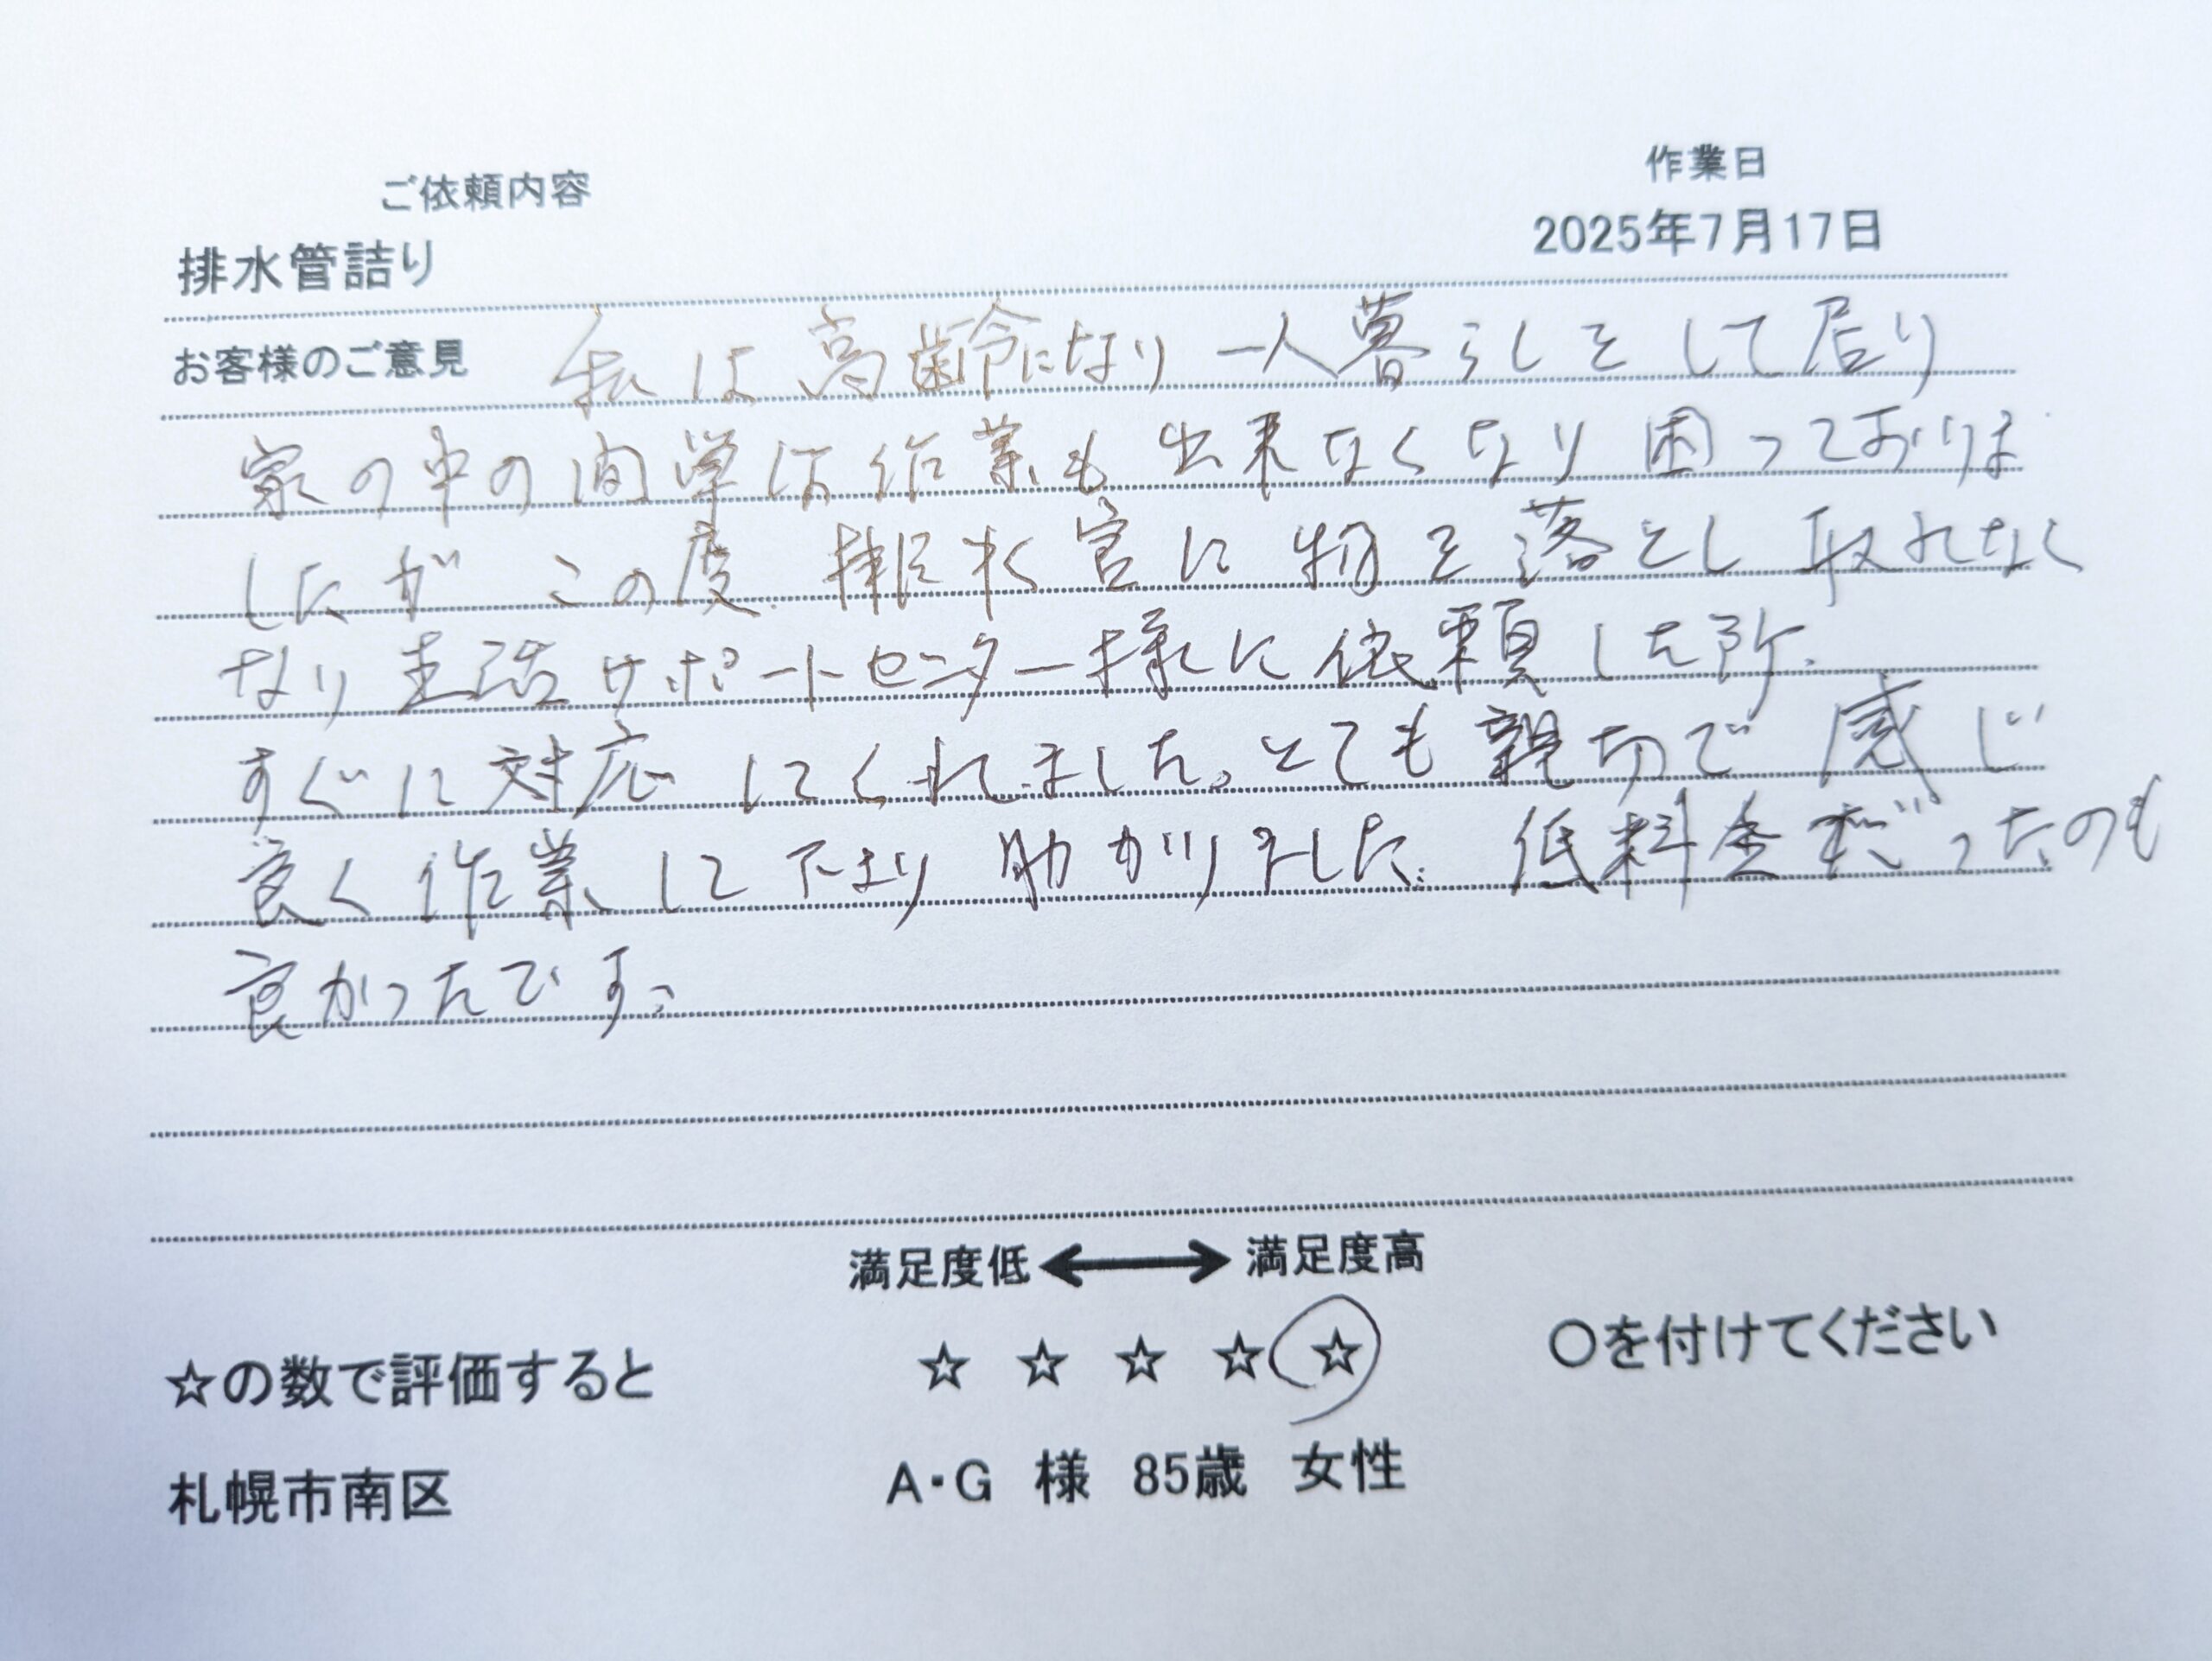 ご依頼内容 作業日
排水管詰り 2025年7月17日
お客様のご意見 私は高齢になり一人暮らしをして居り
家の中の間単な作業も出来なくなり困っておりま
したがこの度.排水官に物を落とし取れなく
なり生活サポートセンター様に依頼した所.
すぐに対応してくれました。とても親切で感じ
良く作業して下さり助かりました.低料金だったのも
良かったです。
満足度低 満足度高
☆の数で評価すると ☆ ☆ ☆ ☆ ☆ ○を付けてください
札幌市南区 A・G 様 85歳 女性